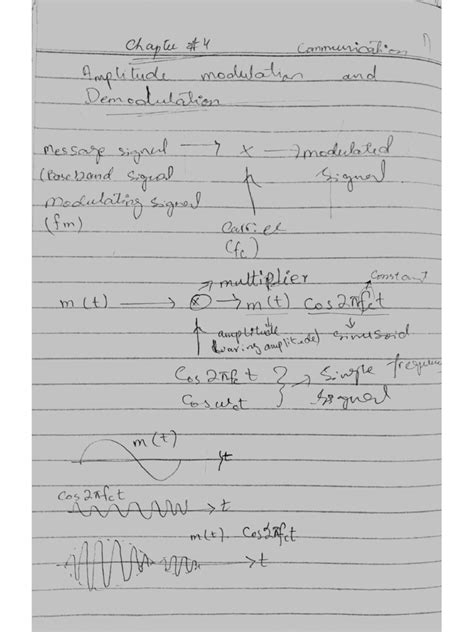 Chapter #4 Communication
Amplitude modulation and
Demodulation
message signal → x → modulated
(Baseband signal signal
modulating signal
(fm) Carrier
(fc)
multiplier constant
m(t) → ⊗ → m(t) cos2πfct
amplitude sinusoid
(varing amplitude)
Cos2πfc t } → Single frequency
Cosωct signal
m(t)
t
Cos2πfct
t
m(t). Cos2πfct
t